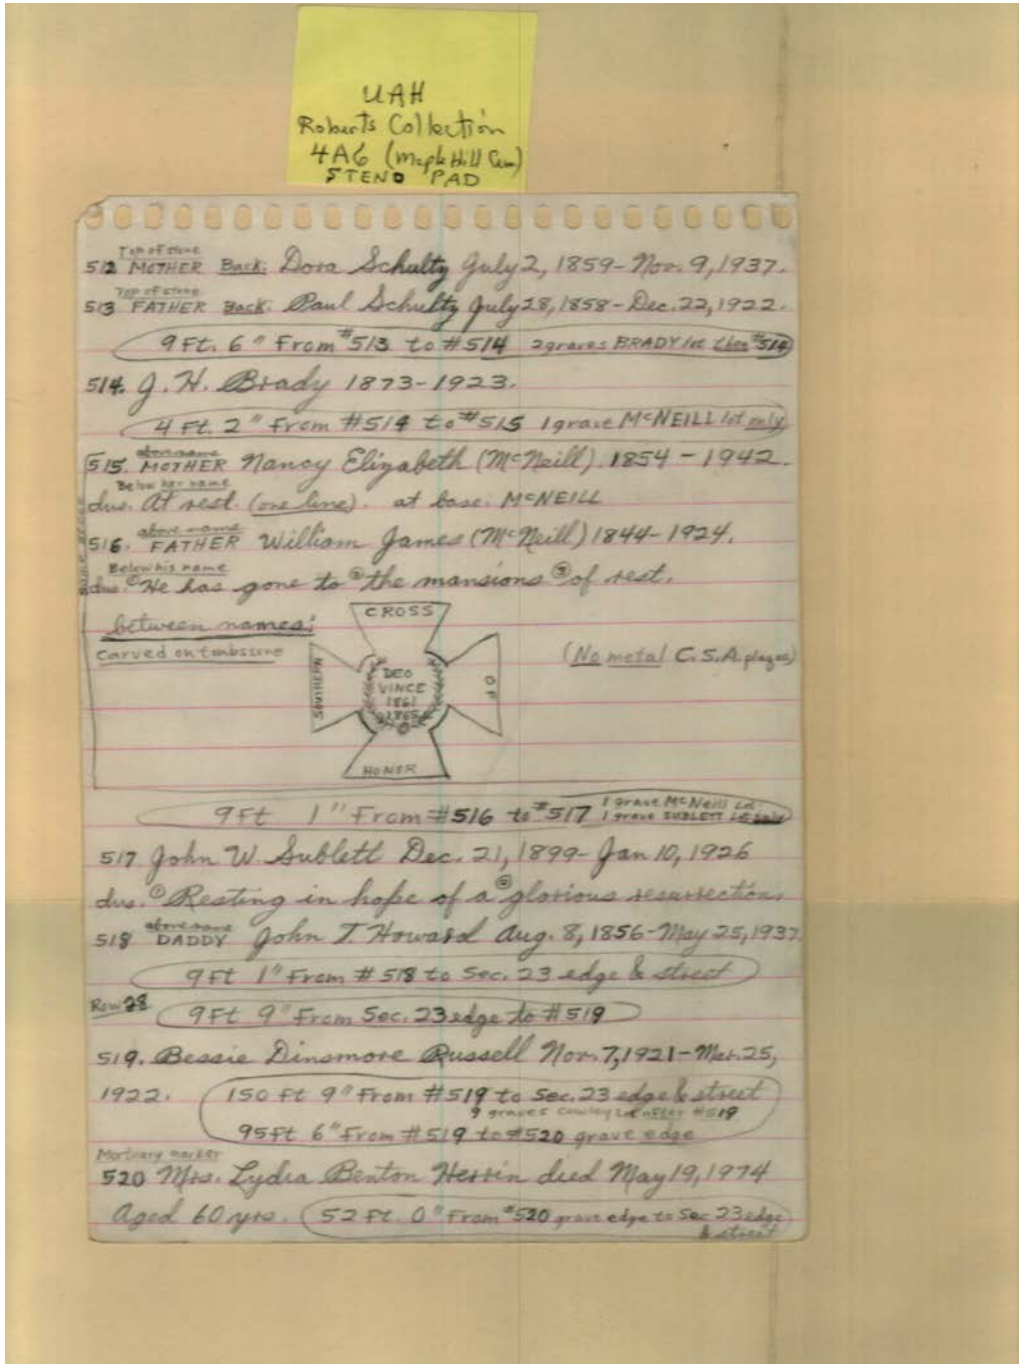 UAH
Roberts Collection
4A6 (Maple Hill Cem)
STENO PAD
Top of stone
512 MOTHER Back: Dora Schultz July 2, 1859-Nov. 9, 1937.
Top of stone
513 FATHER Back: Paul Schultz July 28, 1858-Dec. 22, 1922.
9 Ft. 6" From #513 to #514 2 graves BRADY lot then #514
514. J. H. Brady 1873-1923.
4 Ft. 2" From #514 to #515 1 grave McNEILL lot only
515. above name MOTHER Nancy Elizabeth (McNeill) 1854-1942.
Below her name
dus. At rest. (one line). at base: McNEILL
516. above name FATHER William James (McNeill) 1844-1924.
Below his name
dus. ① He has gone to ② the mansions ③ of rest.
same stone
between names:
Carved on tombstone
CROSS
SOUTHERN
DEO
VINCE
1861
1865
OF
HONOR
(No metal C.S.A. plaque)
9 Ft 1" From #516 to #517 1 grave McNeill Lot
1 grave SUBLETT Lot
517 John W. Sublett Dec. 21, 1899-Jan 10, 1926
dus. ① Resting in hope of a ② glorious resurrection.
518 above name DADDY John T. Howard Aug. 8, 1856-May 25, 1937.
9 Ft 1" From #518 to Sec. 23 edge & street
Row 28
9 Ft 9" From Sec. 23 edge to #519
519. Bessie Dinsmore Russell Nov. 7, 1921-Mar. 25,
1922. 150 Ft 9" From #519 to Sec. 23 edge & street
9 graves Cowley Lot after #519
95 Ft 6" From #519 to #520 grave edge
Mortuary marker
520 Mrs. Lydia Benton Herrin died May 19, 1974
Aged 60 yrs. 52 Ft. 0" From #520 grave edge to Sec 23 edge
& street